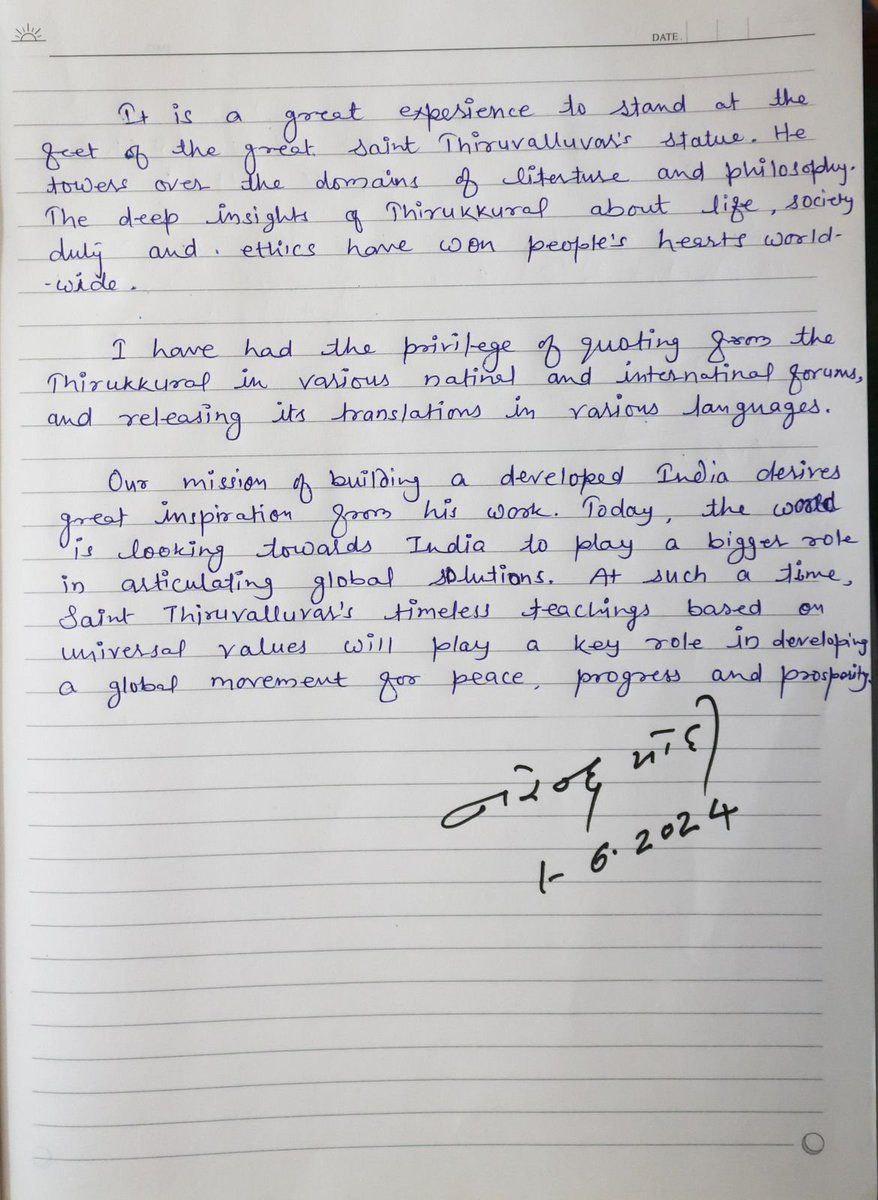 DATE.
It is a great experience to stand at the
feet of the great saint Thiruvalluvar's statue. He
towers over the domains of literture and philosophy.
The deep insights of Thirukkural about life, society
duty and. ethics have won people's hearts world-
-wide.
I have had the privilege of quoting from the
Thirukkural in various natinal and internatinal forums,
and releasing its translations in various languages.
Our mission of building a developed India derives
great inspiration from his work. Today, the world
is looking towards India to play a bigger role
in articulating global solutions. At such a time,
Saint Thiruvalluvar's timeless teachings based on
universal values will play a key role in developing
a global movement for peace, progress and prosparity.
નરેન્દ્ર મોદી
1-6.2024